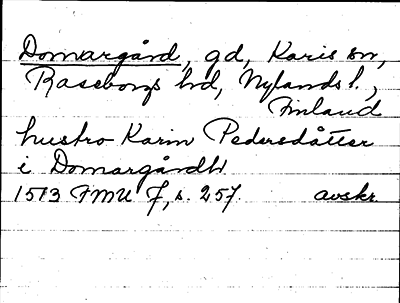 Domargård, gd, Karis sn,
Raseborgs hd, Nylands l.,
Finland
hustro Karin Pedersdåtter
i Domargårdh
1513 FMU 7, s. 257. avskr.